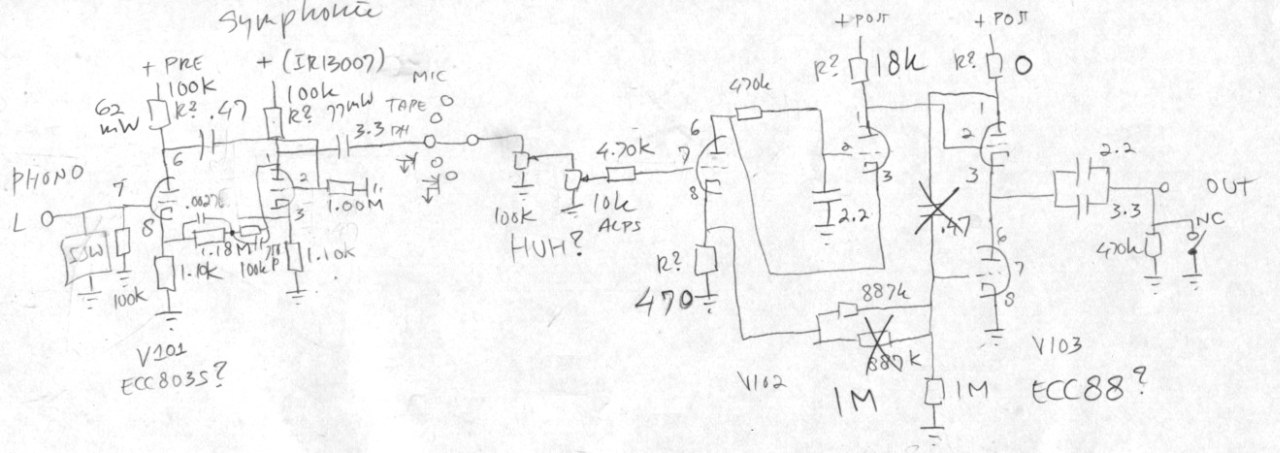 Symphonie
+ POST
+ POST
+ PRE
+ (IR13007)
R?
18k
R?
0
100k
100k
MIC
62
mW
R?
.47
R?
77mW
TAPE
470k
3.3
1
1
6
6
1
2
4.70k
7
2
2
2.2
PHONO
7
1.00M
8
3
3
OUT
L
8
.0027
3
10k
ALPS
2.2
.47
3.3
NC
SSW
1.18M
100k
1.10k
100k
HUH?
6
470k
1.10k
R?
7
100k
470
887k
8
V101
887k
V103
ECC803S?
V102
1M
1M
ECC88?